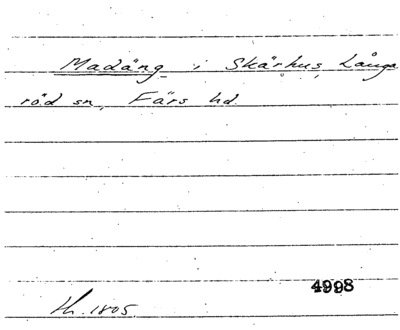 Madäng i Skärhus, Långa
röd sn, Färs hd.
4998
h. 1805.